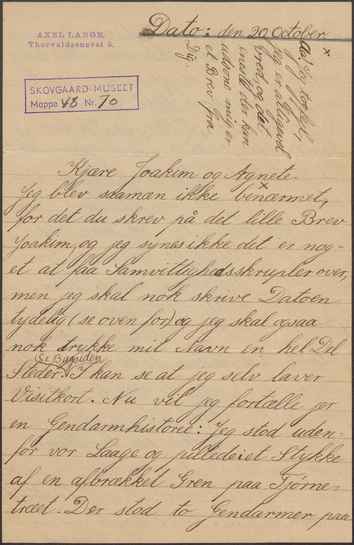 AXEL LARSEN.
Thorvaldsensvej 5.
Dato: den 20 October
SKOVGAARD-MUSEET
Mappe 48 Nr. 70
jeg er alligevel
vred, og det
eneste der kan
mig er
et Brev fra
Dig.
Kjære Joakim og Agnete.
Jeg blev saamæn ikke benærmet,
for det du skrev på det lille Brev
Joakim, og jeg synes ikke det er nog-
et at faa Samvittighedsskrupler over,
men jeg skal nok skrive Datoen
tydelig (se oven for) og jeg skal ogsaa
nok trykke mit Navn en hel Del
(Se Bagsiden)
Steder. I kan se at jeg selv laver
Visitkort. Nu vil jeg fortælle jer
en Gendarmhistorie: Jeg stod uden-
for vor Laage og pillede et Stykke
af en afbrækket Gren paa Tjørne-
træet. Der stod to Gendarmer paa